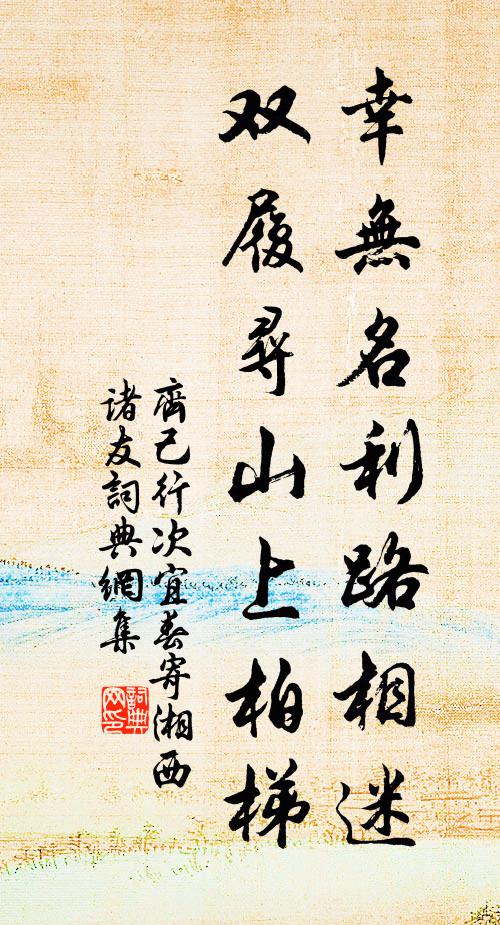 幸無名利路相迷
双履尋山上柏梯
齊己行次宜春寄湘西
诸友詞典網集
詞典
网印